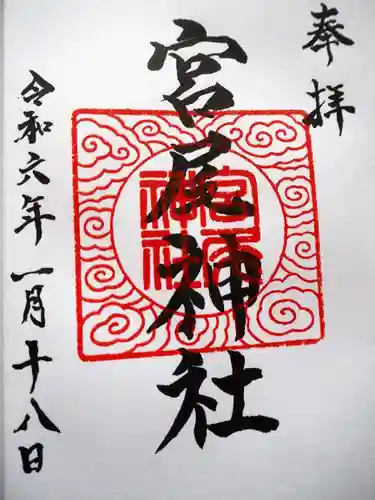 奉拝
宮尾神社
宮尾
神社
令和六年一月十八日